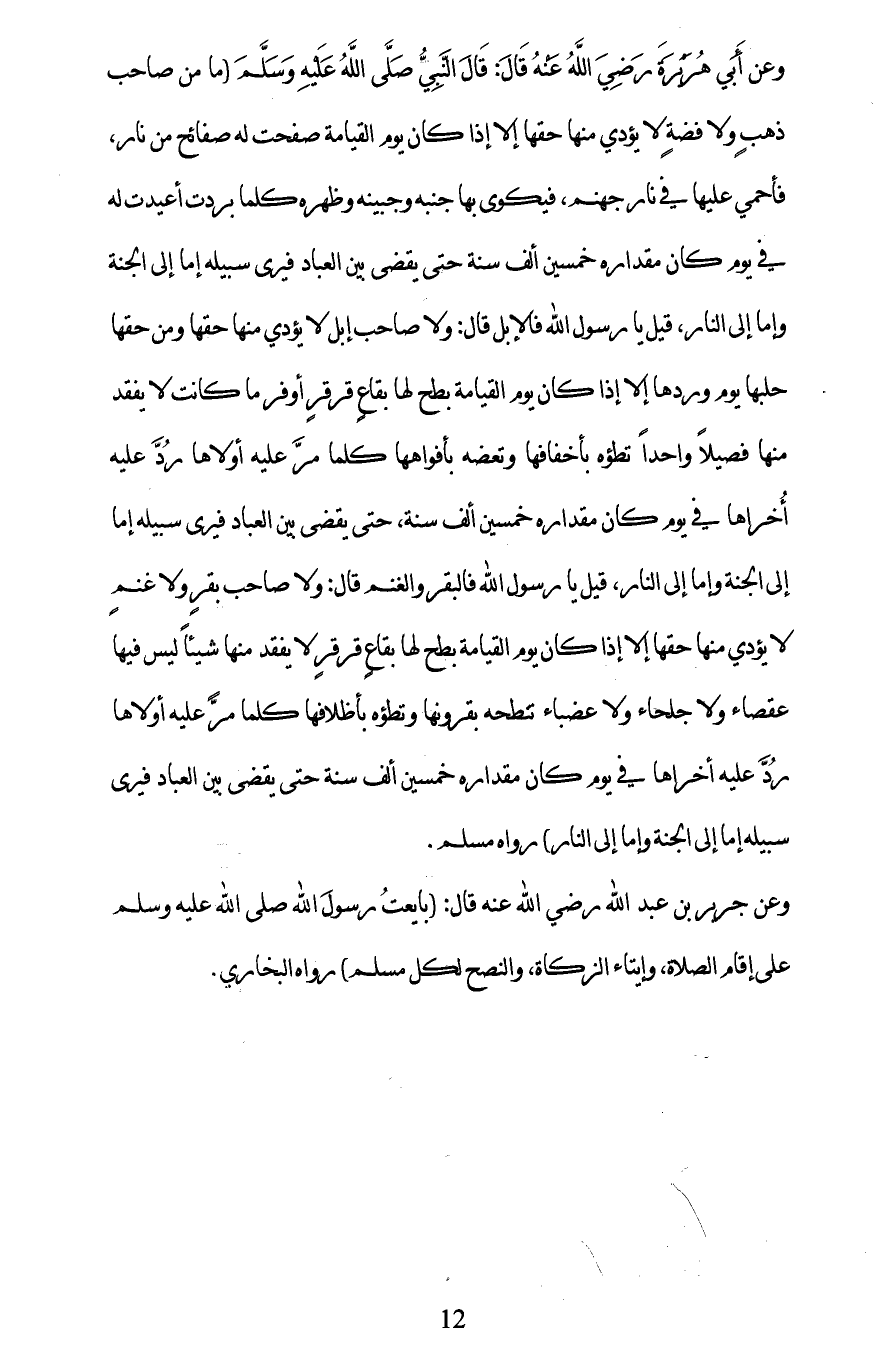 وعن أَبي هُرَيْرَةَ رَضِيَ اللَّهُ عَنْهُ قَالَ: قَالَ النَّبِيُّ صَلَّى اللَّهُ عَلَيْهِ وَسَلَّمَ (ما من صاحب
ذهبٍ ولا فضةٍ لا يؤدي منها حقها إلا إذا كان يوم القيامة صفحت له صفائح من نار،
فأحمي عليها في نار جهنم، فيكوى بها جنبه وجبينه وظهره كلما بردت أعيدت له
في يوم كان مقداره خمسين ألف سنة حتى يقضى بين العباد فيرى سبيله إما إلى الجنة
وإما إلى النار، قيل يا رسول الله فالإبل قال: ولا صاحب إبل لا يؤدي منها حقها ومن حقها
حلبها يوم وردها إلا إذا كان يوم القيامة بطح لها بقاعٍ قرقرٍ أوفر ما كانت لا يفقد
منها فصيلاً واحداً تطؤه بأخفافها وتعضه بأفواهها كلما مرَّ عليه أولاها رُدَّ عليه
أُخراها في يوم كان مقداره خمسين ألف سنة، حتى يقضى بين العباد فيرى سبيله إما
إلى الجنة وإما إلى النار، قيل يا رسول الله فالبقر والغنم قال: ولا صاحب بقرٍ ولا غنمٍ
لا يؤدي منها حقها إلا إذا كان يوم القيامة بطح لها بقاعٍ قرقرٍ لا يفقد منها شيئاً ليس فيها
عقصاء ولا جلحاء ولا عضباء تنطحه بقرونها وتطؤه بأظلافها كلما مرَّ عليه أولاها
رُدَّ عليه أخراها في يوم كان مقداره خمسين ألف سنة حتى يقضى بين العباد فيرى
سبيله إما إلى الجنة وإما إلى النار) رواه مسلم.
وعن جرير بن عبد الله رضي الله عنه قال: (بايعتُ رسولَ الله صلى الله عليه وسلم
على إقام الصلاة، وإيتاء الزكاة، والنصح لكل مسلم) رواه البخاري.
12